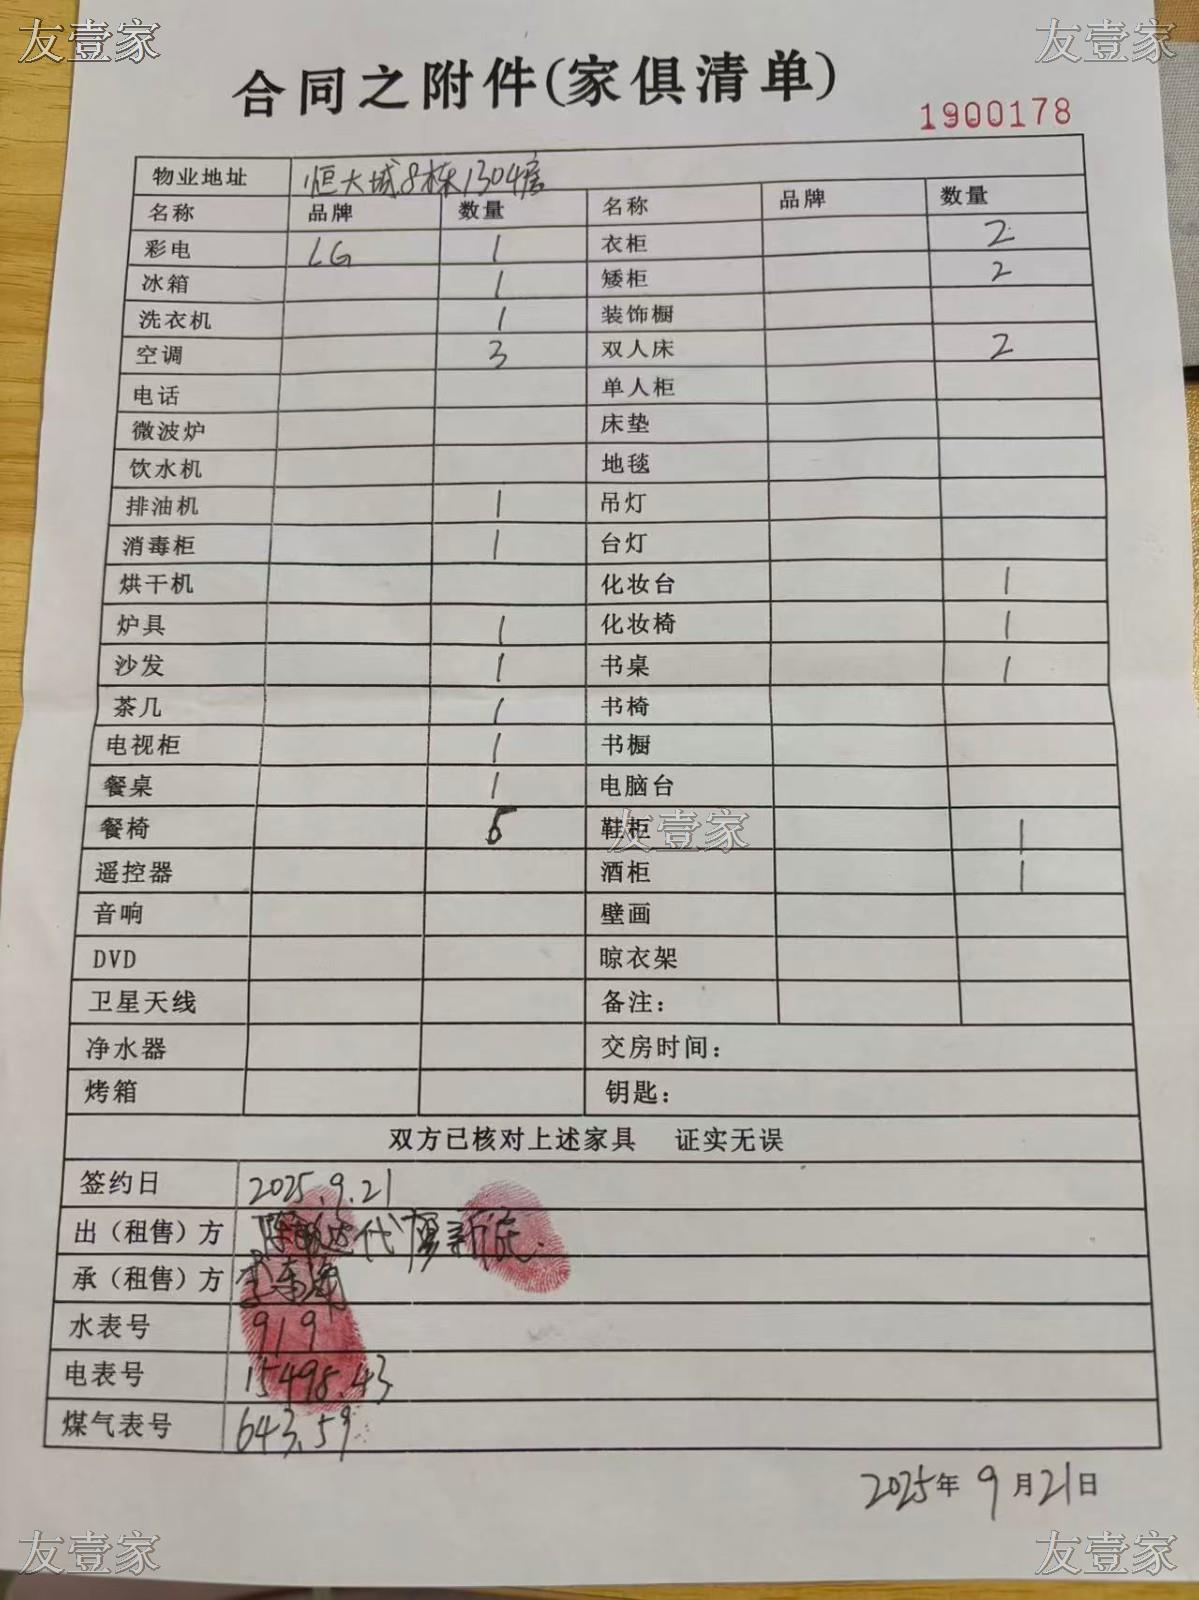 友壹家 友壹家
合同之附件(家俱清单)
1900178
物业地址 恒大城8栋1304房
名称 品牌 数量 名称 品牌 数量
彩电 LG 1 衣柜 2
冰箱 1 矮柜 2
洗衣机 1 装饰橱
空调 3 双人床 2
电话 单人柜
微波炉 床垫
饮水机 地毯
排油机 1 吊灯
消毒柜 1 台灯
烘干机 化妆台 1
炉具 1 化妆椅 1
沙发 1 书桌 1
茶几 1 书椅
电视柜 1 书橱
餐桌 1 电脑台
餐椅 鞋柜 1
友壹家
遥控器 酒柜 1
音响 壁画
DVD 晾衣架
卫星天线 备注：
净水器 交房时间：
烤箱 钥匙：
双方已核对上述家具 证实无误
签约日 2025.9.21
出（租售）方 代
承（租售）方 李
水表号 919
电表号 15498.43
煤气表号 643.59
2025年9月21日
友壹家 友壹家